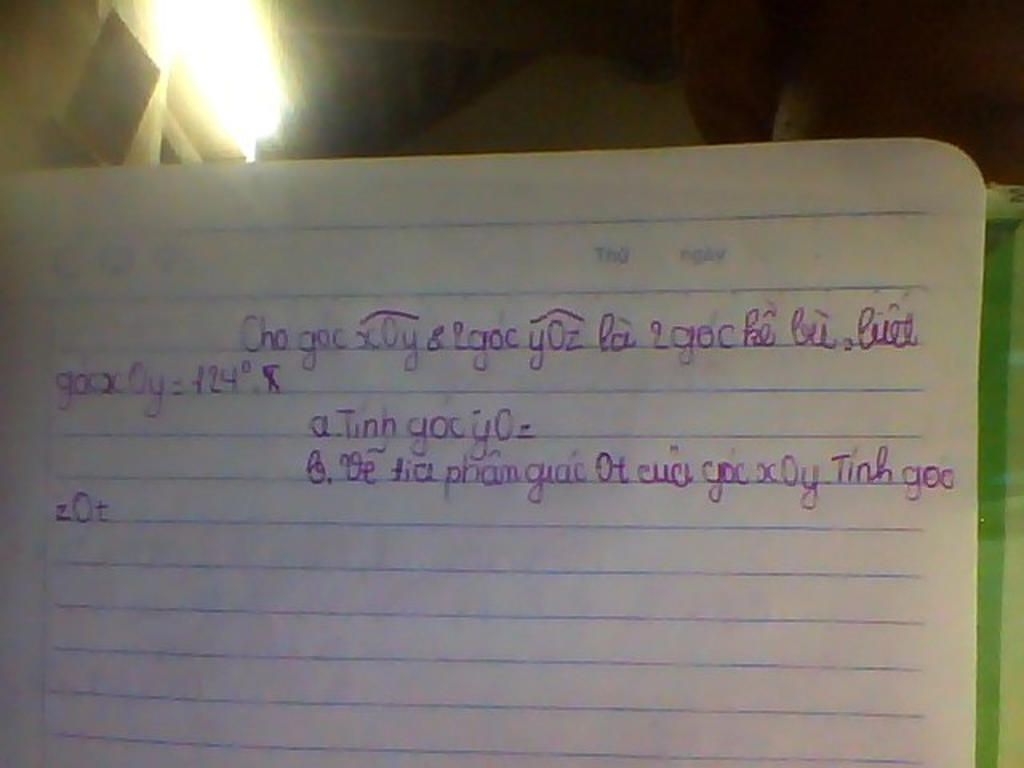 Thứ ngày
Cho góc xOy & 2góc yOz là 2 góc kề bù, biết
góc xOy = 124°.
a. Tính góc yOz
b. Vẽ tia phân giác Ot của góc xOy Tính góc
zOt